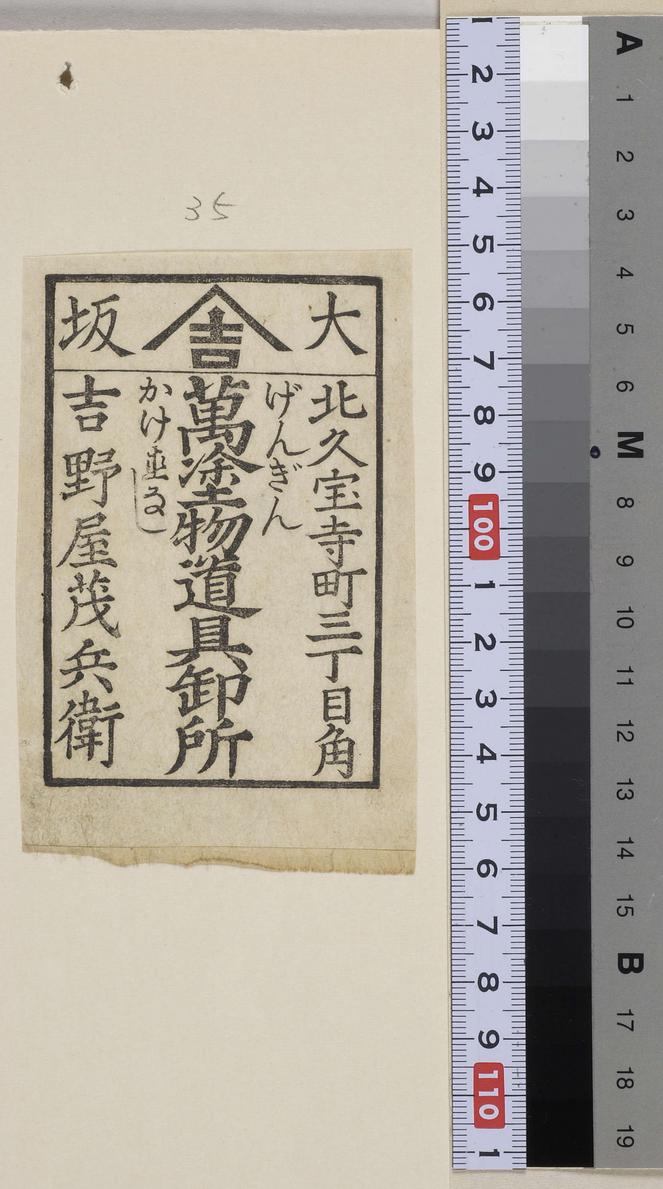 35
大
吉
坂
北久宝寺町三丁目角
げんぎん
萬塗物道具卸所
かけ直なし
吉野屋茂兵衛
1 2 3 4 5 6 7 8 9 100 1 2 3 4 5 6 7 8 9 110 1
A 1 2 3 4 5 6 M 8 9 10 11 12 13 14 15 B 17 18 19